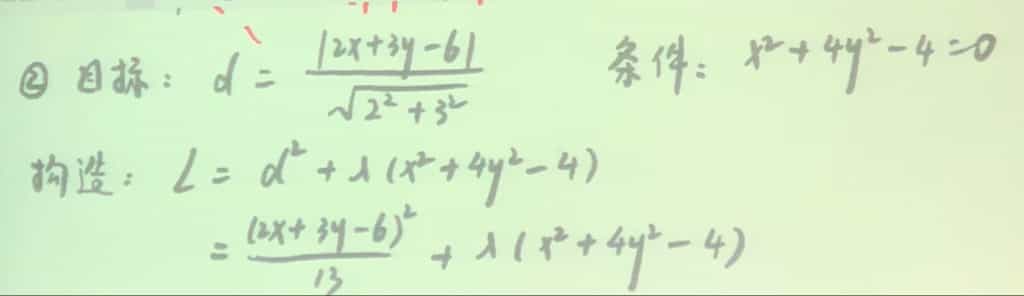 ② 目标: d = |2x+3y-6| / √(2²+3²) 条件: x²+4y²-4=0
构造: L = d² + λ(x²+4y²-4)
= (2x+3y-6)² / 13 + λ(x²+4y²-4)